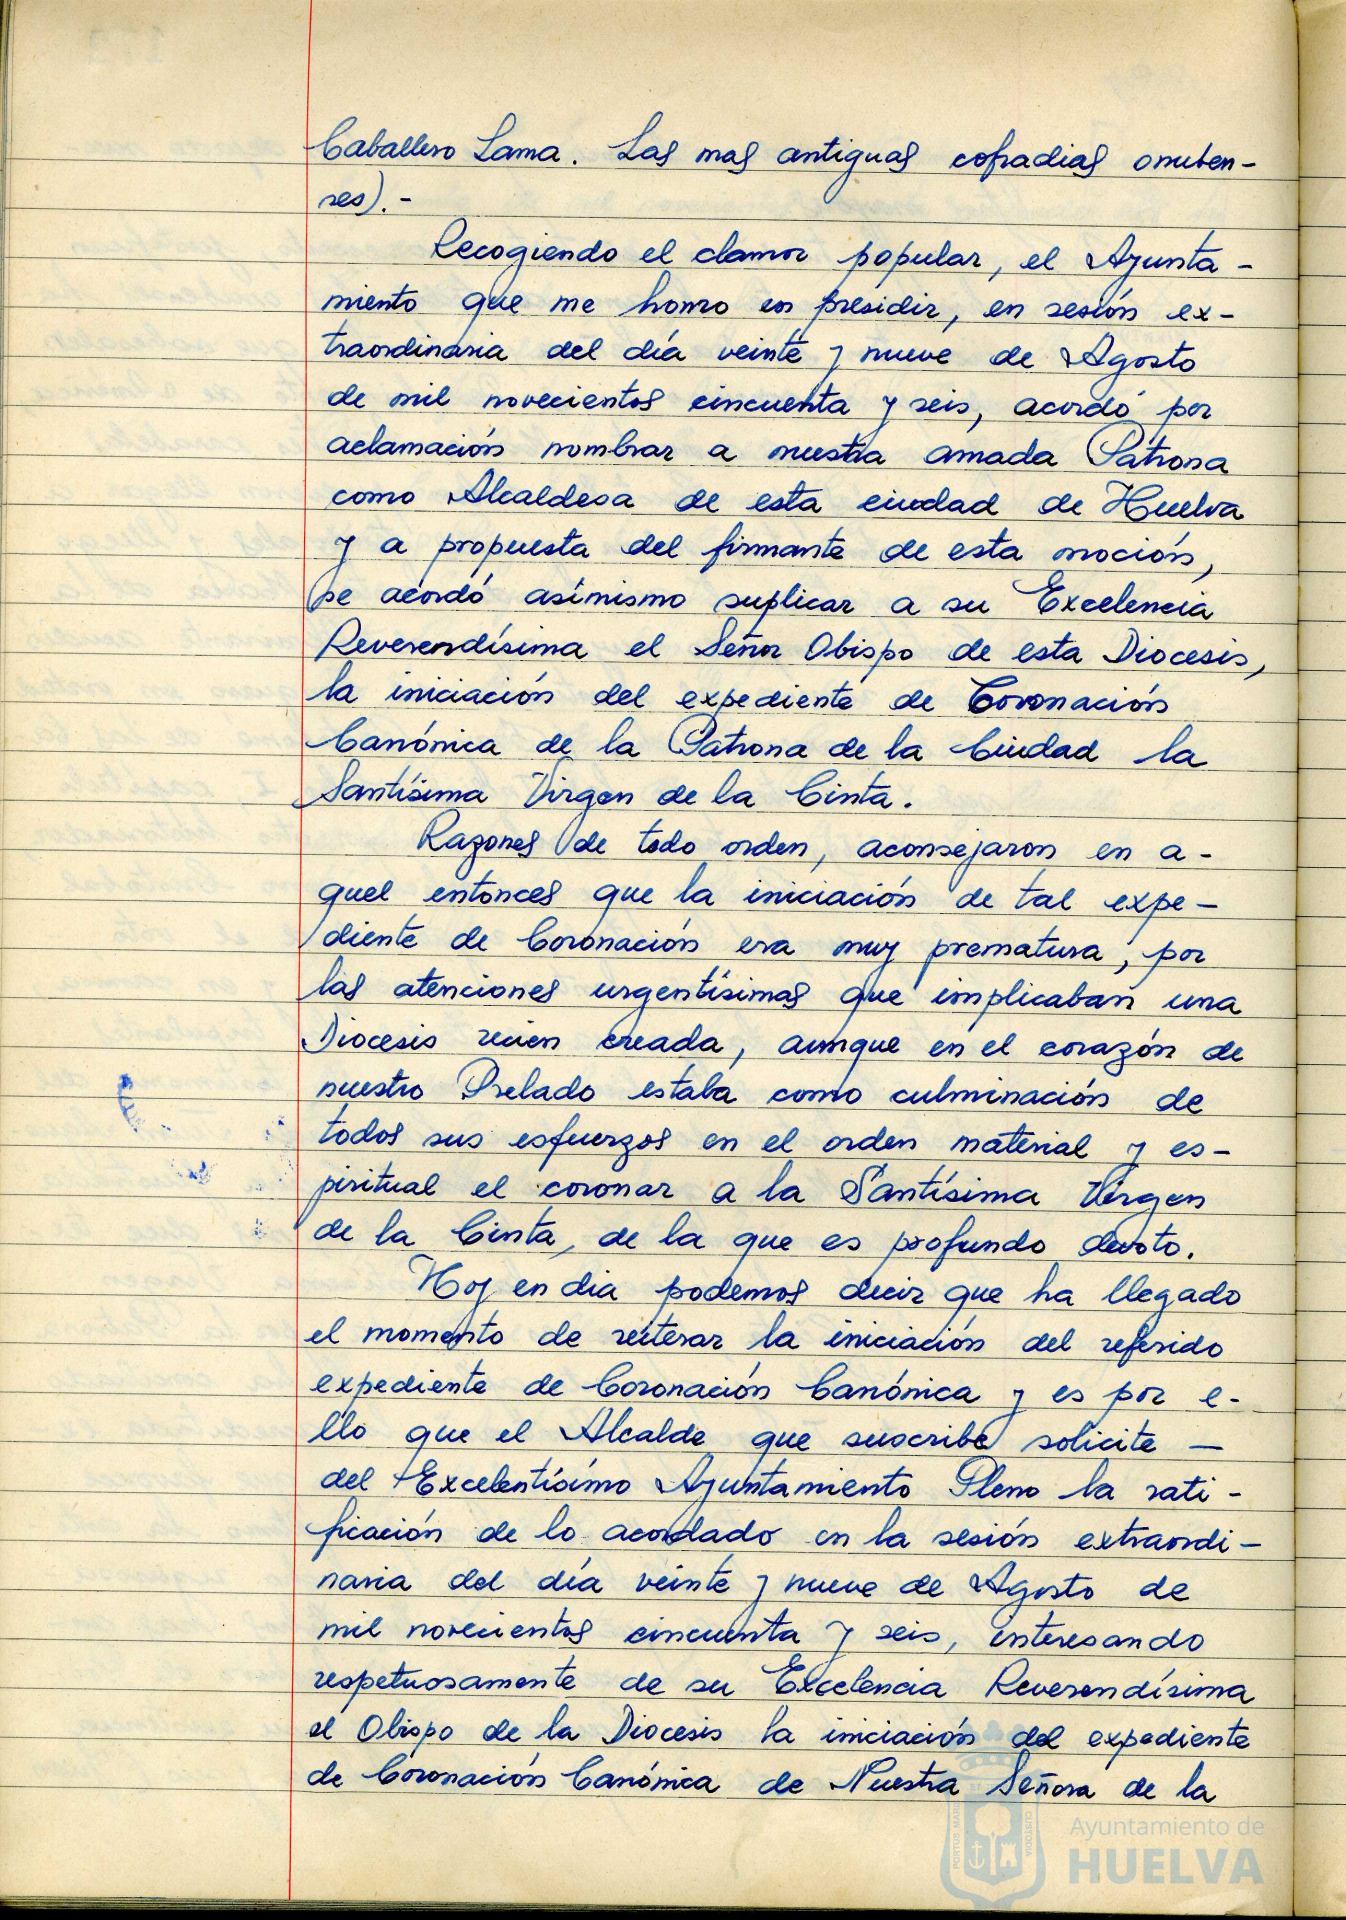 Caballero Lama. Las mas antiguas cofradias onuben-
ses).-
Recogiendo el clamor popular, el Ayunta-
miento que me honro en presidir, en sesión ex-
traordinaria del día veinte y nueve de Agosto
de mil novecientos cincuenta y seis, acordó por
aclamación nombrar a nuestra amada Patrona
como Alcaldesa de esta ciudad de Huelva
y a propuesta del firmante de esta moción,
se acordó asímismo suplicar a su Excelencia
Reverendísima el Señor Obispo de esta Diocesis,
la iniciación del expediente de Coronación
Canónica de la Patrona de la Ciudad la
Santísima Virgen de la Cinta.
Razones de todo orden, aconsejaron en a-
quel entonces que la iniciación de tal expe-
diente de Coronación era muy prematura, por
las atenciones urgentísimas que implicaban una
Diocesis recien creada, aunque en el corazón de
nuestro Prelado estaba como culminación de
todos sus esfuerzos en el orden material y es-
piritual el coronar a la Santísima Virgen
de la Cinta, de la que es profundo devoto.
Hoy en dia podemos decir que ha llegado
el momento de reiterar la iniciación del referido
expediente de Coronación Canónica y es por e-
llo que el Alcalde que suscribe solicite —
del Excelentísimo Ayuntamiento Pleno la rati-
ficación de lo acordado en la sesión extraordi-
naria del día veinte y nueve de Agosto de
mil novecientos cincuenta y seis, interesando
respetuosamente de su Excelencia Reverendísima
el Obispo de la Diocesis la iniciación del expediente
de Coronación Canónica de Nuestra Señora de la
Ayuntamiento de
HUELVA